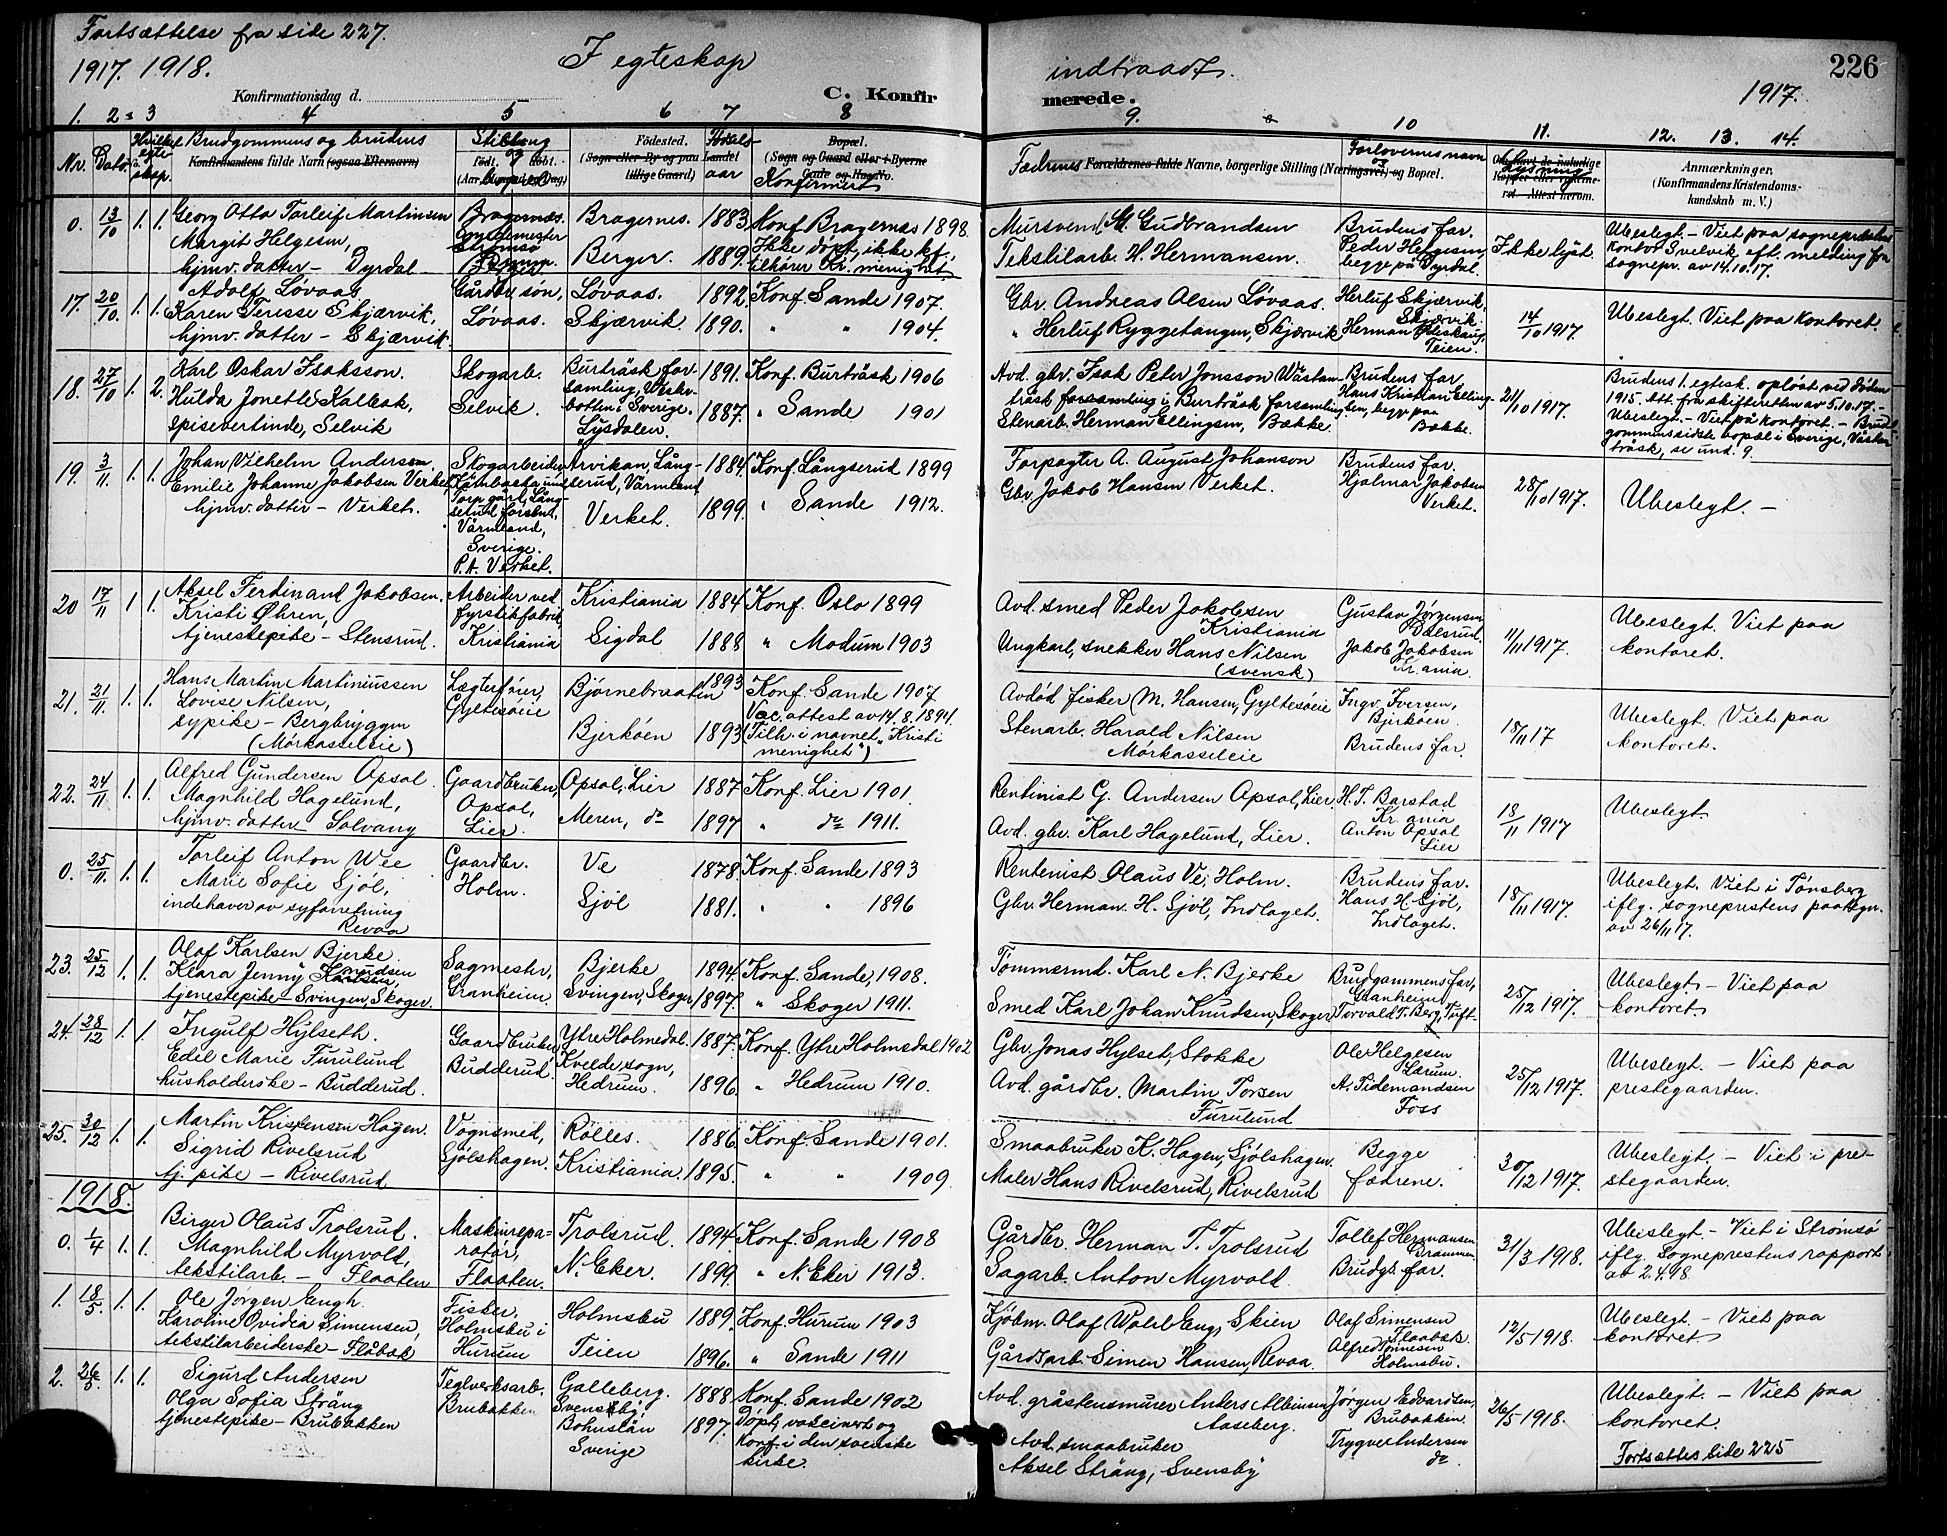 Fortsættelse fra side 227.
1917. 1918.
I egteskap indtraadt.
226
1917.
Konfirmationsdag d.
C. Konfirmerede.
1. 2 3 4 5 6 7 8 9. 10 11. 12. 13. 14.
Nr. Dato. Hvilket egteskap. Brudgommens og brudens
Konfirmandens fulde Navn (ogsaa Efternavn)
Stilling og
født. døbt.
Fødested.
(Sogn eller By og paa Landet tillige Gaard)
Fødselsaar
Bopæl.
(Sogn og Gaard eller i Byerne Gade og Hus No.
Konfirmert
Fædrenes Forældrenes fulde Navne, borgerlige Stilling (Næringsvei) og Bopæl.
Forlovernes navn
Lysning
Anmærkninger.
(Konfirmandens Kristendomskundskab m. V.)
0. 13/10 1. 1. Georg Otto Torleif Martinsen
Margit Helgesen,
hjmv. datter – Dyrdal
Bragernæs.
Strømsø
Bragernes. 1883. Konf. Bragernes 1898.
Berger. 1889. Ikke døpt, ikke kf.,
tilhører Kr. menighet
Mursvend M. Gudbrandsen
Tekstilarb. H. Hermansen.
Brudens far.
Peder Helgesen,
begge på Dyrdal.
Ikke lyst.
Ubeslegt. – Viet paa sogneprestens
kontor Svelvik eft. melding fra
sognepr. av 14.10.17.
17. 20/10. 1. 1. Adolf Løvaas.
Karen Teresse Skjærvik,
hjmv. datter – Skjærvik.
Gårdbr. søn,
Løvaas.
Løvaas. 1892. Konf. Sande 1907.
Skjærvik. 1890. " " 1904.
Gbr. Andreas Olsen Løvaas.
" Herluf Ryggetangen, Skjærvik
Herluf Skjærvik,
Skjærvik.
Herman
Teien.
14/10 1917.
Ubeslegt. Viet paa kontoret.
18. 27/10 1. 2. Karl Oskar Isaksson.
Hulda Jonette Kalbak,
spisevertinde, Selvik
Skogarb.
Selvik.
Burträsk forsamling, Vesterbotten i Sverige.
Lysdalen.
1891. Konf. Burträsk 1906
1887. " Sande 1901
Avd. gbr. Isak Peter Jonsson Västanträsk forsamling i Burträsk forsamling
Stenarb. Herman Ellingsen, Bække
Brudens far
Hans Kristian Ellingsen, begge paa
Bække.
21/10 1917.
Brudens 1. egtesk. opløst ved døden
1915. Att. fra skifteretten av 5.10.17. –
Ubeslegt. – Viet på kontoret. – Brudgommens sidste bopæl i Sverige, Västanträsk, se und. 9.
19. 3/11. 1. 1. Johan Vilhelm Andersson,
Emilie Johanne Jakobsen Verket,
hjmv. datter – Verket.
Skogarbeider
Torp gård, Långserud forsaml,
Värmland,
Sverige.
P.A. Verket.
Arvikan, Långserud, Värmland
Verket.
1884. Konf. Långserud 1899
1899. " Sande 1912.
Forpagter A. August Johanson
Gbr. Jakob Hansen Verket.
Brudens far.
Hjalmar Jakobsen
Verket.
28/10 1917.
Ubeslegt. –
20 17/11 1 1. Aksel Ferdinand Jakobsen.
Kristi Øhren,
tjenestepike – Stensrud.
Arbeider ved
fyrstikfabrik,
Kristiania
Kristiania 1884 Konf. Oslo 1899
Sigdal 1888 " Modum 1903
Avd. smed Peder Jakobsen
Kristiania
Ungkarl, snekker Hans Nilsen
(svensk)
Gustav Jørgensen
Dalsrud.
Jakob Jakobsen
Kr.ania.
11/11 1917.
Ubeslegt. Viet paa
kontoret.
21. 21/11. 1. 1. Hans Martin Martiniussen
Lovise Nilsen,
sypike – Bergbryggen
(Mörkasseleie)
Lægterfører,
Gyltesøeie
Bjørnebraaten 1893 Konf. Sande 1907
Bjerköen 1893 Vac. attest av 14.8.1894.
(Tilh. i navnet "Kristi
menighet")
Avdød fisker M. Hansen, Gyltesøeie
Stenarb. Harald Nilsen
Mörkasseleie
Ingv. Iversen,
Bjerköen
Brudens far.
18/11 17
Ubeslegt. Viet paa
kontoret.
22. 24/11 1. 1. Alfred Gundersen Opsal
Magnhild Hagelund,
hjmv. datter Solvang
Gaardbruker,
Opsal,
Lier.
Opsal, Lier 1887 Konf. Lier 1901.
Meren, do 1897 " do 1911.
Rentenist G. Andersen Opsal, Lier
Avd. gbr. Karl Hagelund, Lier.
H. T. Barstad
Kr. ania
Anton Opsal
Lier
18/11 1917
Ubeslegt
0. 25/11. 1. 1. Torleif Anton Wee
Marie Sofie Sjøl,
indehaver av syforretning
Revaa
Gaardbr.
Holm.
Ve 1878. Konf. Sande 1893
Sjöl 1881. " " 1896
Rentenist Olaus Ve, Holm.
Gbr. Herman H. Sjöl, Indlaget.
Brudens far.
Hans H. Sjöl,
Indlaget.
18/11 1917.
Ubeslegt. Viet i Tønsberg
iflg. sogneprestens paategn.
av 26/11 17.
23. 25/12 1. 1. Olaf Karlsen Bjerke.
Klara Jenny Knudsen
tjenestepike – Svingen, Skoger.
Sagmestr,
Granheim.
Bjerke 1894. Konf. Sande, 1908.
Svingen, Skoger 1897. " Skoger 1911.
Tømmermd. Karl N. Bjerke
Smed Karl Johan Knudsen, Skoger
Brudgommens far,
Granheim
Torvald T. Berg, Tuft
25/12 1917.
Ubeslegt – Viet paa
kontoret
24. 28/12 1. 1. Ingulf Hylseth.
Edil Marie Furulund
husholderske – Budderud.
Gaardbruker
Budderud.
Ytre Holmedal. 1887. Konf. Ytre Holmsdal 1902
Kvelde sogn,
Hedrum. 1896. " Hedrum 1910.
Gbr. Jonas Hylset, Stokke
Avd. gårdbr. Martin Torsen
Furulund
Ole Helgesen
Lærum.
A. Tidemandsen
Foss
25/12 1917.
Ubeslegt. – Viet paa
prestegaarden.
25. 30/12 1. 1. Martin Kristensen Hagen.
Sigrid Rivelsrud
tj. pike – Rivelsrud
Vognsmed,
Sjölshagen.
Rölles. 1886. Konf. Sande 1901.
Kristiania. 1895. " " 1909.
Smaabruker K. Hagen, Sjölshagen.
Maler Hans Rivelsrud, Rivelsrud
Begge
fædrene.
30/12 1917.
Ubeslegt. – Viet i prestegaarden.
1918.
0. 1/4 1. 1. Birger Olaus Trolsrud.
Magnhild Myrvold,
tekstilarb. – Flaaten
Maskinreparatør,
Flaaten.
Trolsrud. 1894. Konf. Sande 1908
N. Eker. 1899. " N. Eker 1913.
Gårdbr. Herman T. Trolsrud
Sagarb. Anton Myrvold.
Tollef Hermansen
Drammen.
Brudg.s far.
31/3 1918.
Ubeslegt. – Viet i Strømsø
iflg. sogneprestens rapport
av 2.4.18.
1. 18/5. 1. 1. Ole Jørgen Engh.
Karoline Ovidia Simensen,
tekstilarbeiderske – Flåbak
Fisker,
Holmsbu i
Hurum
Holmsbu 1889. Konf. Hurum 1903
Teien 1896. " Sande 1911
Kjøbm. Olaf Wahl Eng, Skien
Gårdsarb. Simen Hansen, Revaa.
Olaf Simensen
Flaabak.
Alfred Tönnesen
Holmsbu.
12/5 1918.
Ubeslegt. – Viet paa
kontoret
2. 26/5. 1. 1. Sigurd Andersen
Olga Sofia Sträng
tjenestepike – Brubakken
Teglverksarb.
Brubakken
Galleberg. 1888. Konf. Sande 1902
Svensby 1897. Döpt, vaksinert og
Bohuslän konf. i den svenske
Sverige kirke.
Avd. gråstensmurer Anders Albinsen
Aaseberg.
Avd. smaabruker
Aksel Sträng, Svensby
Jørgen Edvardsen,
Brubakken.
Trygve Andersen
do.
26/5 1918.
Ubeslegt. – Viet paa
kontoret.
Fortsættes side 225